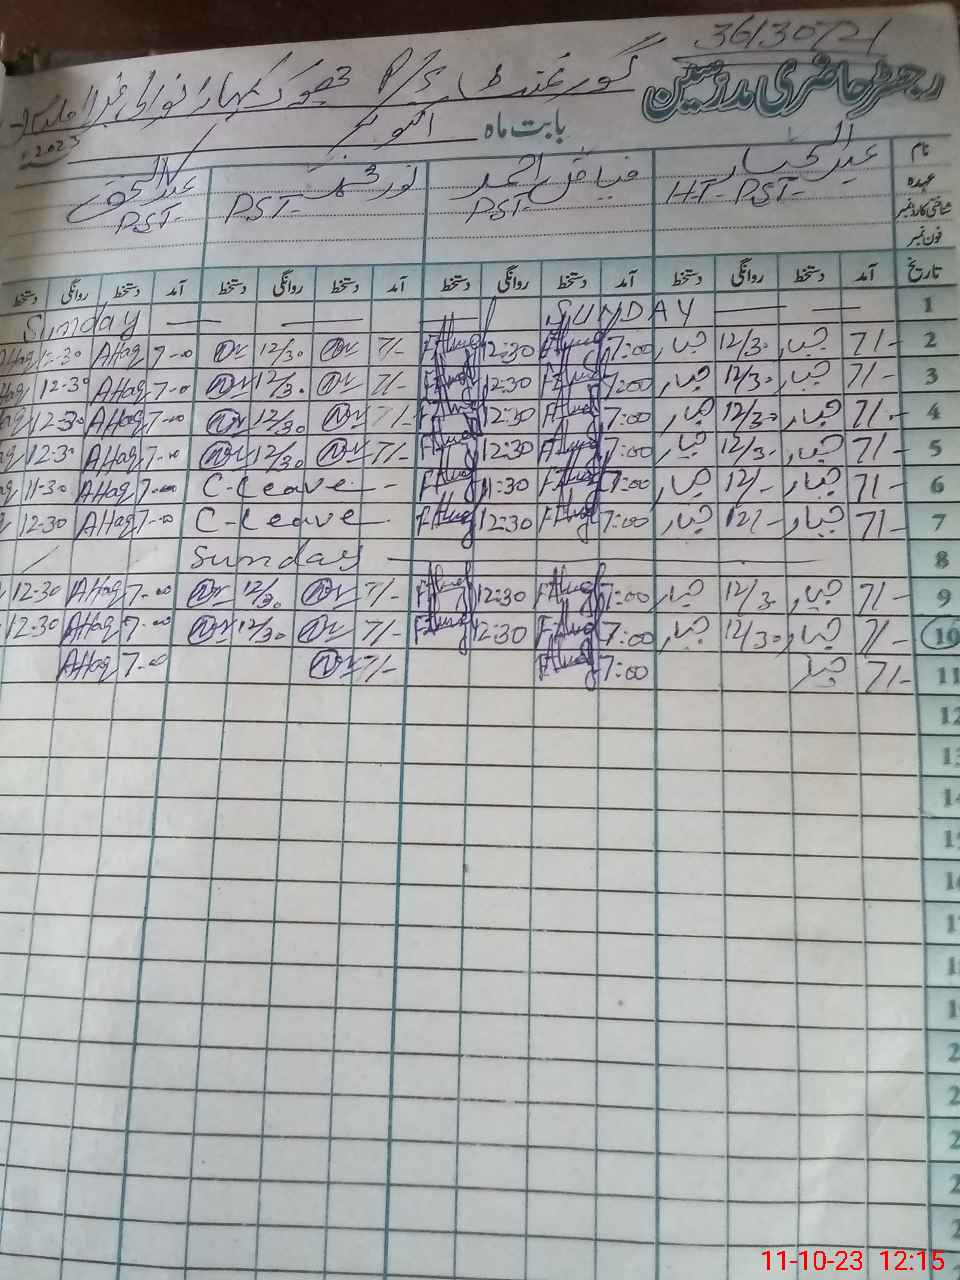 36130721
رجسٹر حاضری مدرسین
گورنمنٹ P/S
بابت ماہ اکتوبر
2023
نام عبدالجبار فیاض احمد نور محمد عبدالحق
عہدہ HT-PST PST- PST- PST-
شناختی کارڈ نمبر
فون نمبر
تاریخ آمد دستخط روانگی دستخط آمد دستخط روانگی دستخط آمد دستخط روانگی دستخط آمد دستخط روانگی دستخط
1 SUNDAY Sunday
2 7/- جبار 12/30 جبار 7:00 FAhmd 12:30 FAhmd 7/- Nr 12/30 Nr 7-00 AHaq 12-30 AHaq
3 7/- جبار 12/30 جبار 7:00 FAhmd 12:30 FAhmd 7/- Nr 12/30 Nr 7-00 AHaq 12-30 AHaq
4 7/- جبار 12/30 جبار 7:00 FAhmd 12:30 FAhmd 7/- Nr 12/30 Nr 7-00 AHaq 12-30
5 7/- جبار 12/30 جبار 7:00 FAhmd 12:30 FAhmd 7/- Nr 12/30 Nr 7-00 AHaq 12-30
6 7/- جبار 12/- جبار 7:00 FAhmd 11:30 FAhmd C-Leave 7-00 AHaq 11-30
7 7/- جبار 12/- جبار 7:00 FAhmd 12:30 FAhmd C-Leave 7-00 AHaq 12-30
8 Sunday
9 7/- جبار 12/30 جبار 7:00 FAhmd 12:30 FAhmd 7/- Nr 12/30 Nr 7-00 AHaq 12-30
10 7/- جبار 12/30 جبار 7:00 FAhmd 12:30 FAhmd 7/- Nr 12/30 Nr 7-00 AHaq 12-30
11 7/- جبار 7:00 FAhmd 7/- Nr 7-00 AHaq
12
13
14
15
16
11-10-23 12:15